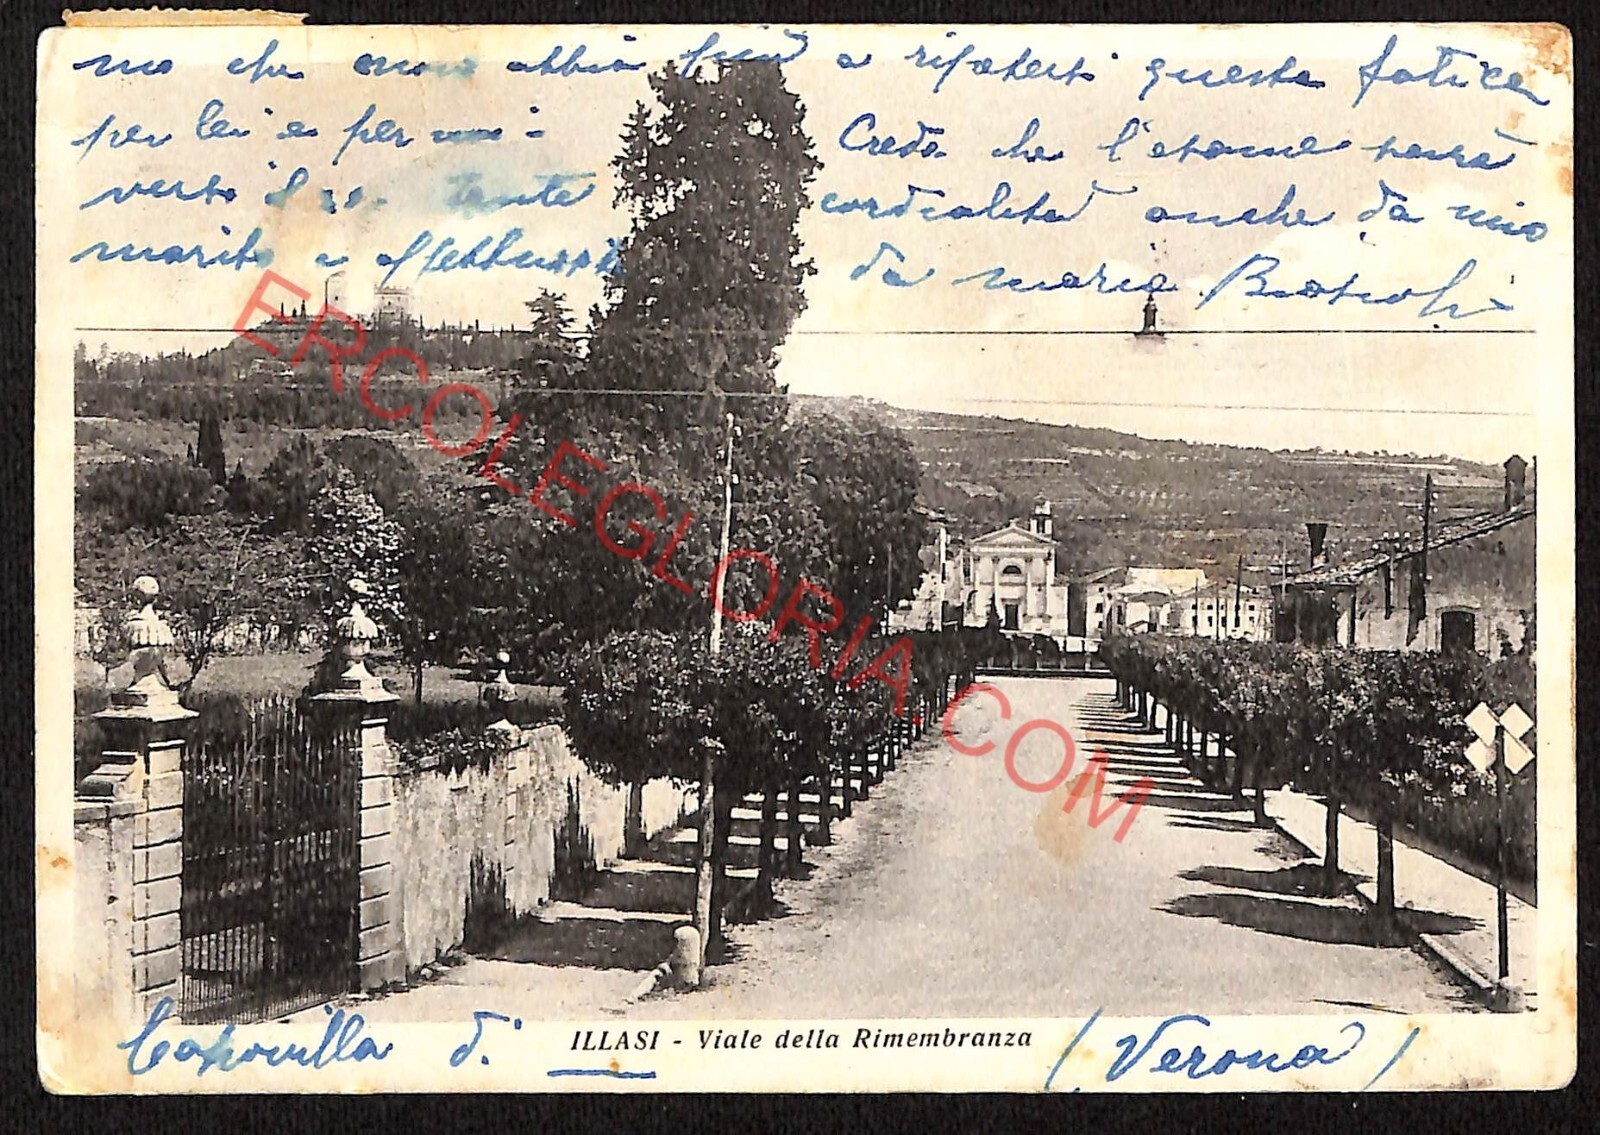 no che non abbia più a ripeterti questa fatica
per lei e per me - Credo che l'esame sarà
verso il 20. tante cordialità anche da mio
marito e affettuosità da Maria
ERCOLEGLORIA.COM
Casavilla di ILLASI - Viale della Rimembranza (Verona)